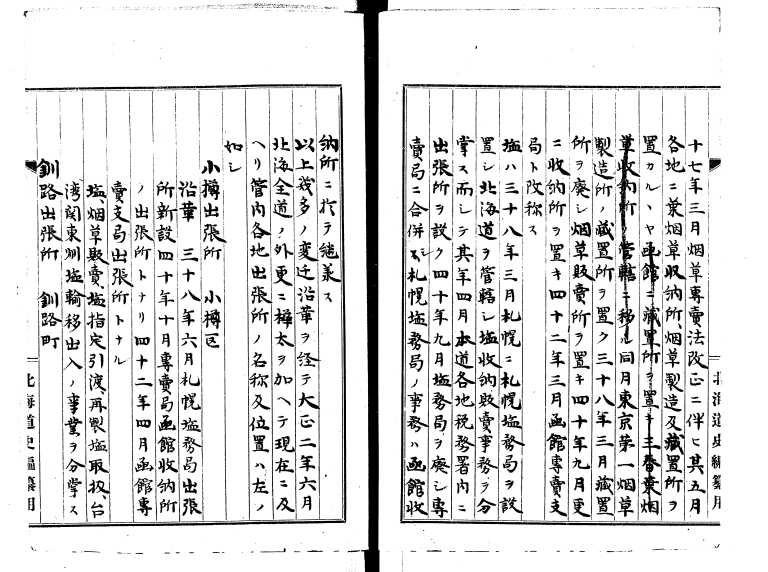 十七年三月烟草専賣法改正ニ伴ヒ其五月
各地ニ葉烟草収納所、烟草製造及藏置所ヲ
置カルヽヤ函館ニ藏置所ヲ置キ三番葉烟
草收納所ノ管轄ニ移ル同月東京第一烟草
製造所ノ藏置所ヲ置ク三十八年三月藏置
所ヲ廃シ烟草販賣所ヲ置キ四十年九月更
ニ收納所ヲ置キ四十二年三月函館専賣支
局ト改称ス
塩ハ三十八年三月札幌ニ札幌塩務局ヲ設
置シ北海道ヲ管轄シ塩收納販賣事務ヲ分
掌ス而シテ其年四月本道各地税務署内ニ
出張所ヲ設ク四十年九月塩務局ヲ廃シ専
賣局ニ合併シ札幌塩務局ノ事務ハ函館收
北海道史編纂用
納所ニ於テ継義ス
以上幾多ノ変迁沿革ヲ経テ大正二年六月
北海全道ノ外更ニ樺太ヲ加ヘテ現在ニ及
ヘリ管内各地出張所ノ名称及位置ハ左ノ
如シ
小樽出張所 小樽区
沿革 三十八年六月札幌塩務局出張
所新設四十年十月専賣局函館收納所
ノ出張所トナリ四十二年四月函館専
賣支局出張所トナル
塩、烟草販賣、塩指定引渡、再製塩取扱、台
湾関東州塩輸移出入ノ事業ヲ分掌ス
釧路出張所 釧路町
北海道史編纂用